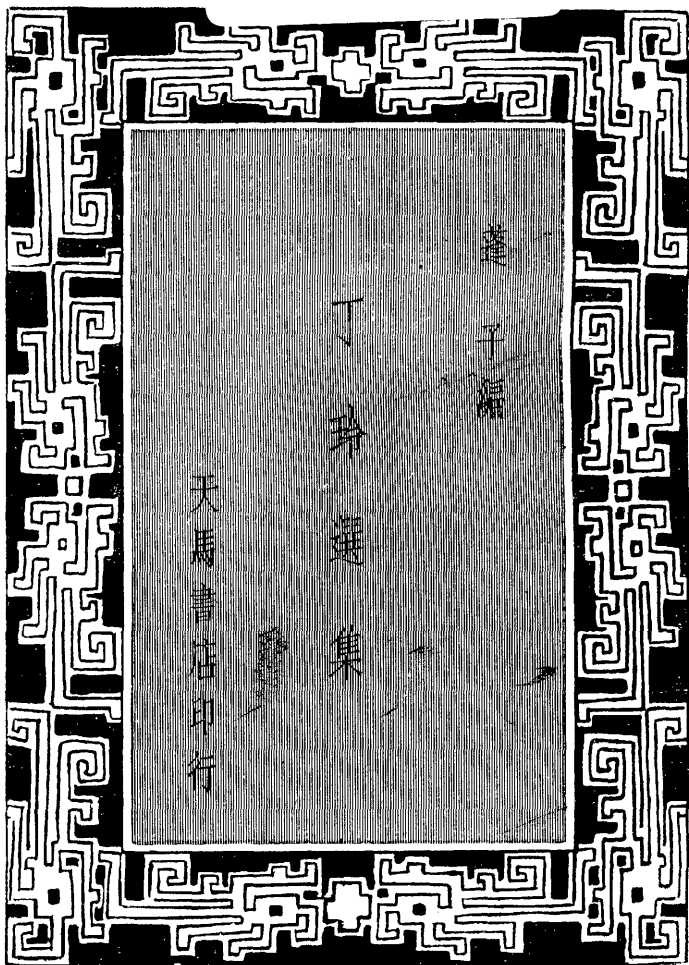 蓬子編
丁玲選集
天馬書店印行